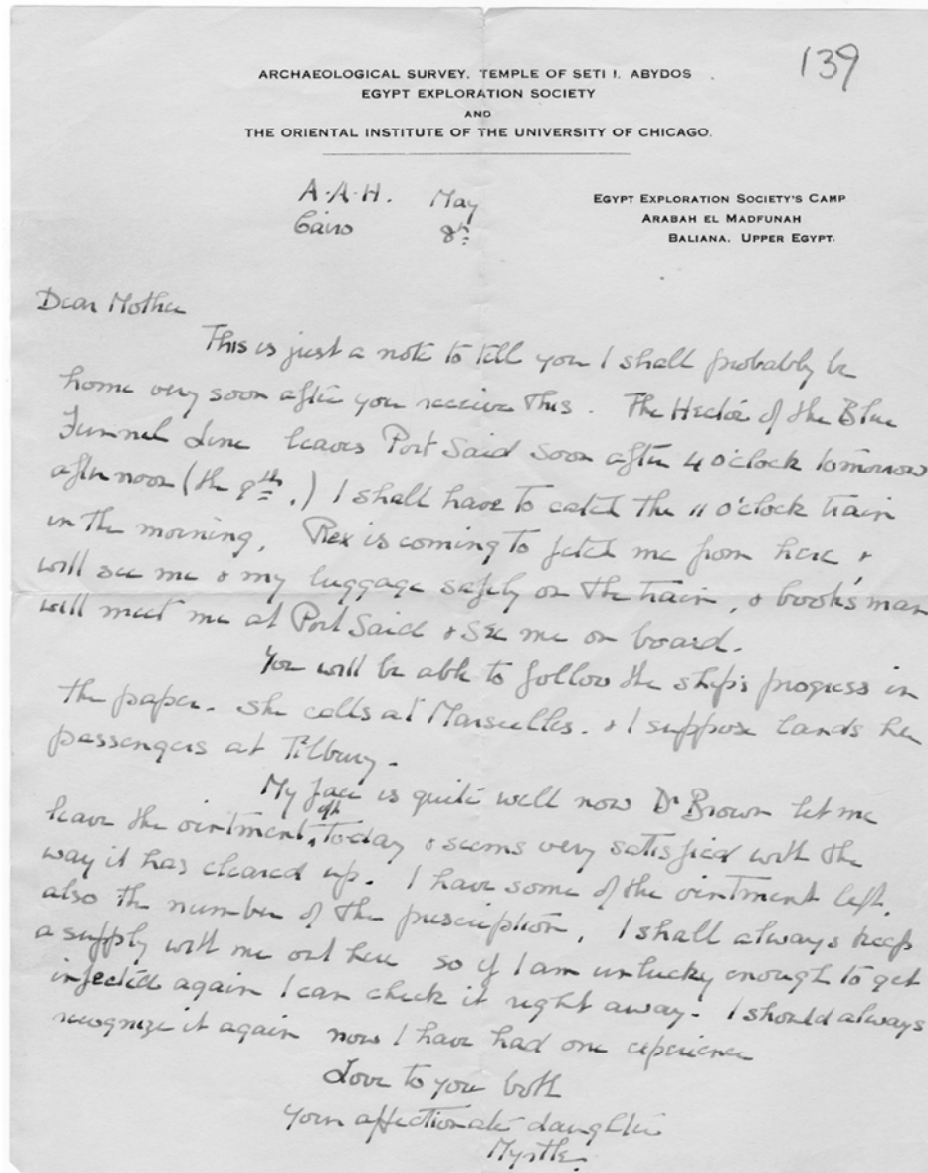 139
ARCHAEOLOGICAL SURVEY. TEMPLE OF SETI I. ABYDOS
EGYPT EXPLORATION SOCIETY
AND
THE ORIENTAL INSTITUTE OF THE UNIVERSITY OF CHICAGO.
A.A.H. May
Cairo 8th
EGYPT EXPLORATION SOCIETY'S CAMP
ARABAH EL MADFUNAH
BALIANA. UPPER EGYPT.
Dear Mother
This is just a note to tell you I shall probably be
home very soon after you receive this. The Hector of the Blue
Funnel Line leaves Port Said soon after 4 o'clock tomorrow
afternoon (the 9th.) I shall have to catch the 11 o'clock train
in the morning. Rex is coming to fetch me from here, &
will see me & my luggage safely on the train, & Cooks man
will meet me at Port Said & see me on board.
You will be able to follow the ship's progress in
the paper. She calls at Marseilles. & I suppose lands her
passengers at Tilbury.
My face is quite well now Dr Brown let me
leave the ointment off today & seems very satisfied with the
way it has cleared up. I have some of the ointment left,
also the number of the prescription. I shall always keep
a supply with me out here so if I am unlucky enough to get
infected again I can check it right away. I should always
recognize it again now I have had one experience
Love to you both
Your affectionate daughter
Myrtle.